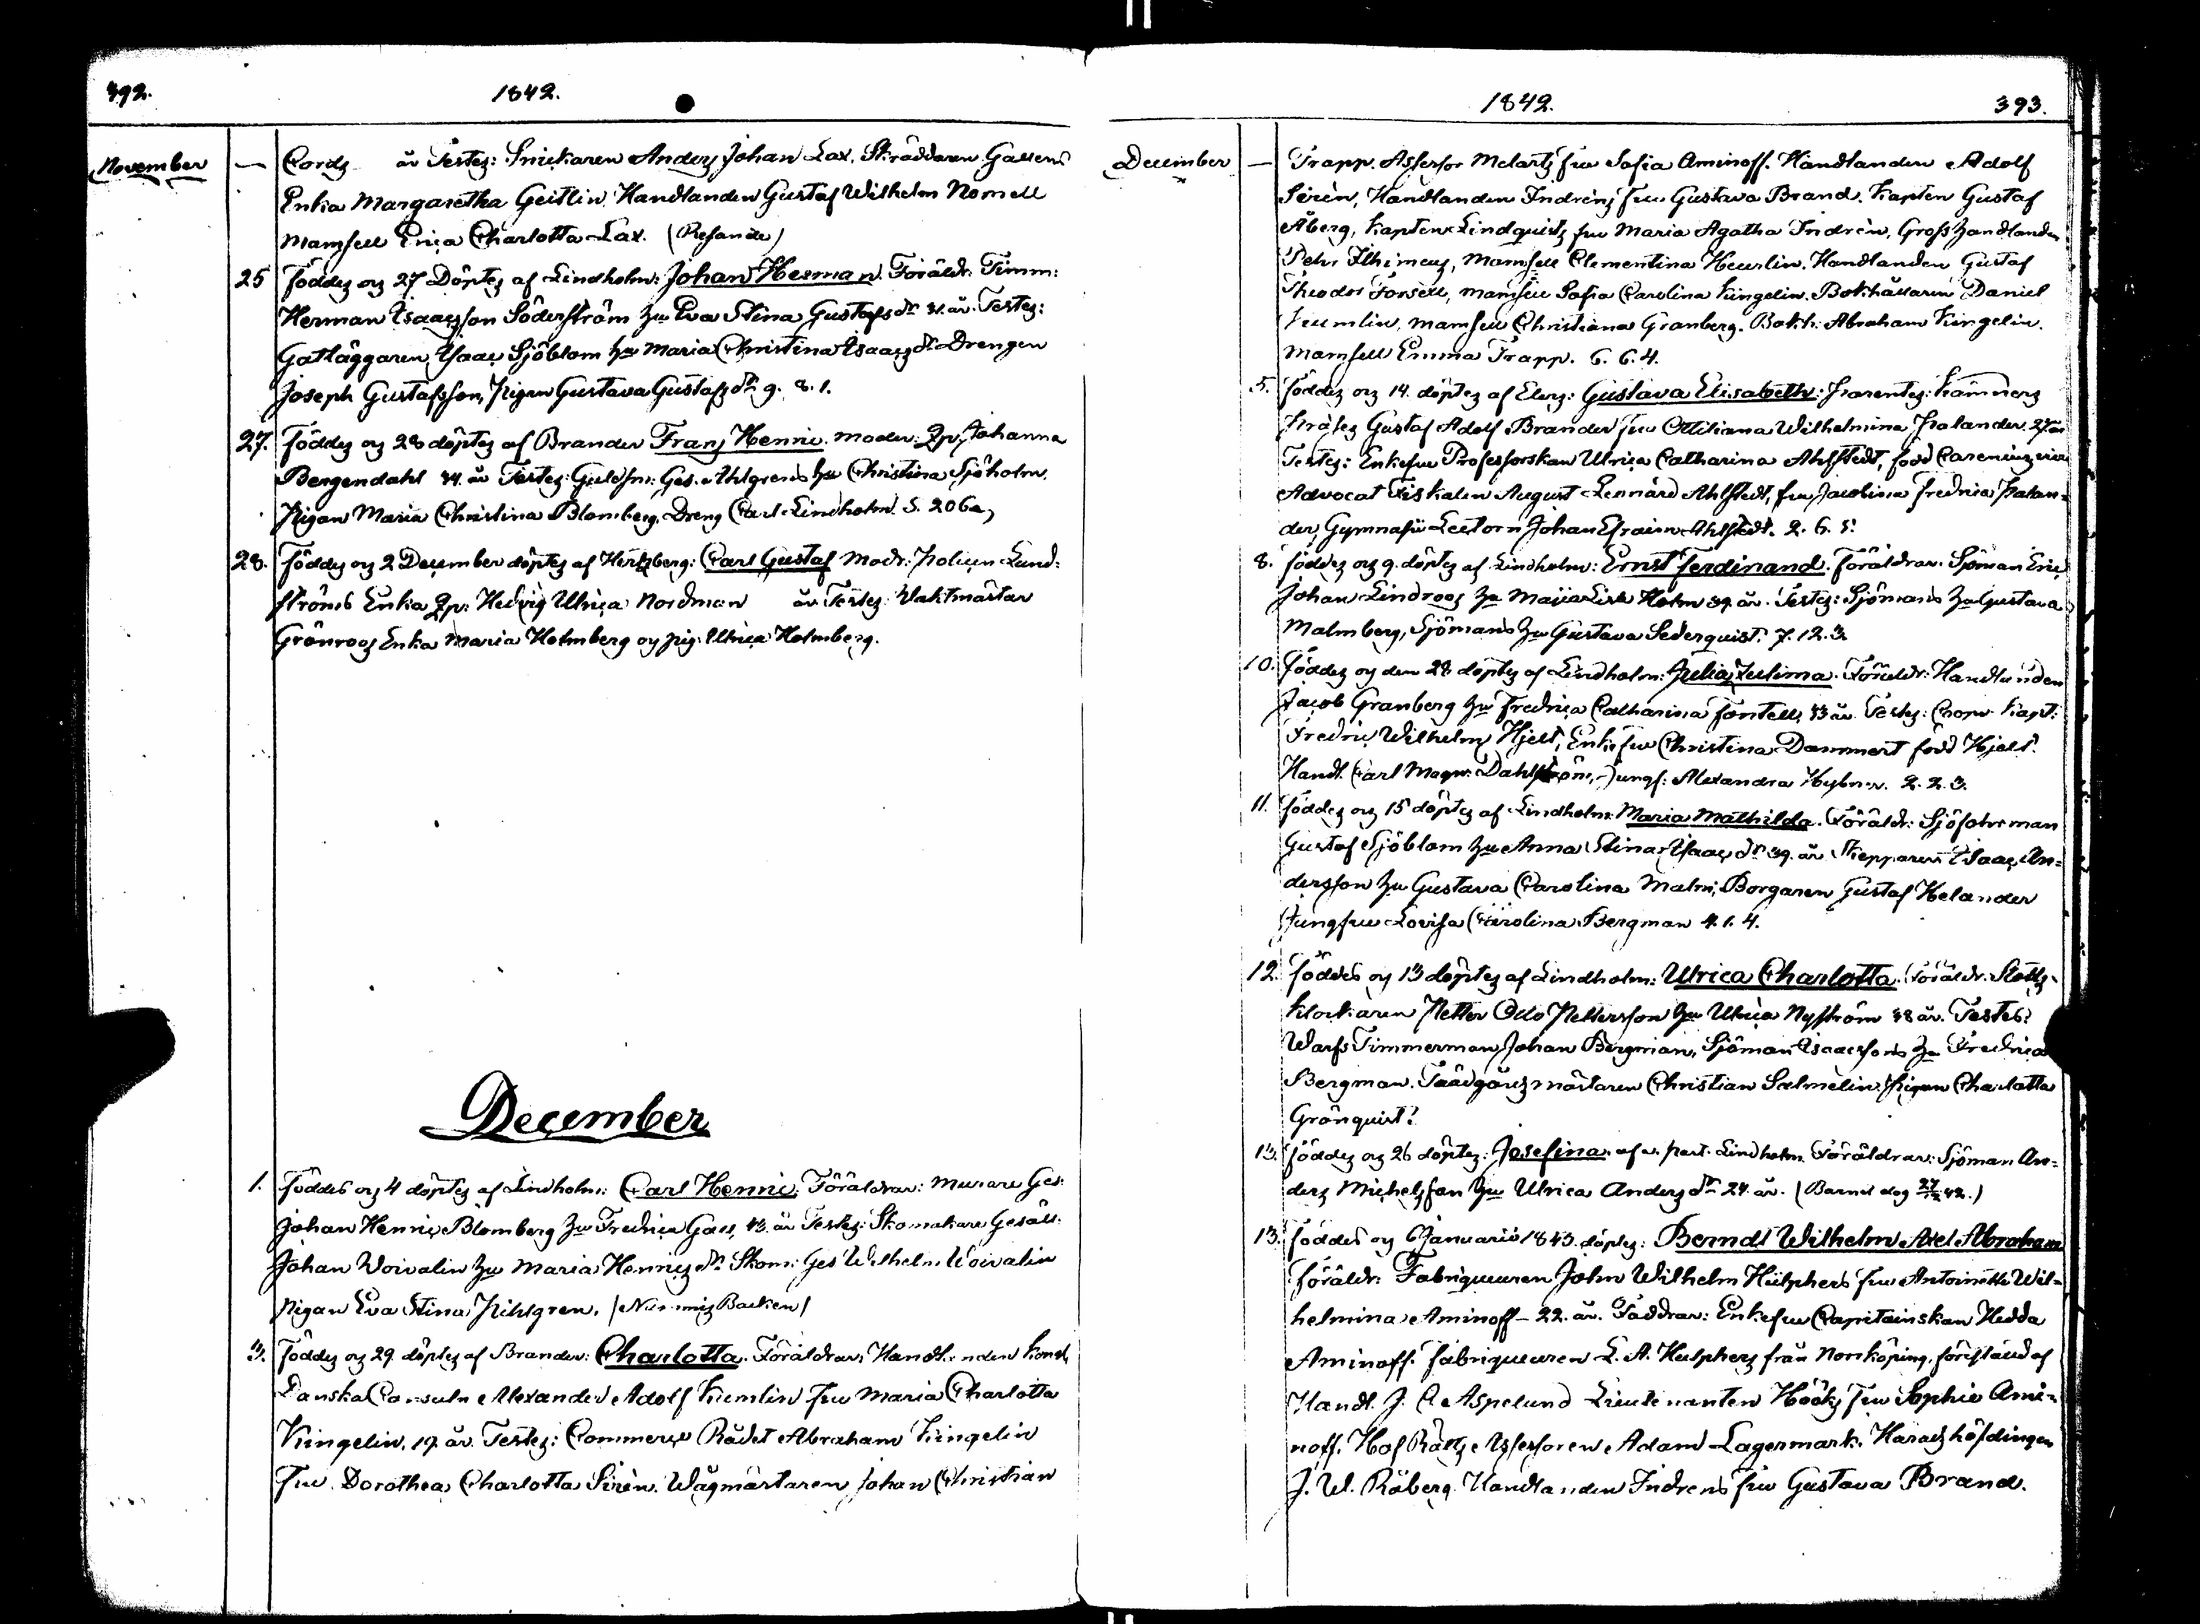 392.
1842.
November
— Cords år Testes: Snickaren Anders Johan Lax, Skräddaren Gassens
Enka Margaretha Geitlin, Handlanden Gustaf Wilhelm Nomell
Mamsell Erica Charlotta Lax. (Resande)
25 Föddes och 27 Döptes af Lindholm: Johan Herman. Föräldr: Timm:
Herman Isaacsson Söderström hu Eva Stina Gustafsdr 31. år. Testes:
Gatläggaren Isaac Sjöblom hu Maria Christina Isaacsdr Drengen
Joseph Gustafsson, Pigan Gustava Gustafsdr 9. 8. 1.
27. Föddes och 28 döptes af Brander Franz Henric. Moder: Qp. Johanna
Bergendahl 34. år Testes: Guldsm: Ges. Ahlgrens hu Christina Sjöholm.
Pigan Maria Christina Blomberg. Dreng Carl Lindholm. S. 206a,
28. Föddes och 2 December döptes af Hertzberg: Carl Gustaf Modr: Policen Lund:
ströms Enka Qp. Hedvig Ulrica Nordman år Testes: Vaktmästar
Grönroos Enka Maria Holmberg och pig: Ulrica Holmberg.
December
1. Föddes och 4 döptes af Lindholm: Carl Henric. Föräldrar: Murare Ges:
Johan Henric Blomberg hu Fredrica Gass, 43. år Testes: Skomakare Gesäll:
Johan Woivalin hu Maria Henricsdr Skom: Ges Wilhelm Woivalin
Pigan Eva Stina Pihlgren. (Nummis Backen)
3. Föddes och 29. döptes af Brander: Charlotta. Föräldrar: Handlanden Kongl.
Danska Consuln Alexander Adolf Kumlin fru Maria Charlotta
Kingelin. 19. år. Testes: Commerce Rådet Abraham Kingelin
Fru Dorothea Charlotta Sirén. Wågmästaren Johan Christian
1842.
393.
December
— Trapp. Assessor Melarts fru Sofia Aminoff. Handlanden Adolf
Sirèn, Handlanden Indrèns fru Gustava Brand. Kapten Gustaf
Åberg, Kapten Lindquists fru Maria Agatha Indrèn, Grosshandlanden
Pehr Thimeus, Mamsell Clementina Heurlin. Handlanden Gustaf
Theodor Forsell, Mamsell Sofia Carolina Kingelin. Bokhållaren Daniel
Kumlin, Mamsell Christiana Granberg. Bokh: Abraham Kingelin.
Mamsell Emma Trapp. 6. 6. 4.
5. Föddes och 14. döptes af Elers: Gustava Elisabeth: Parentes: Kämners
Præses Gustaf Adolf Brander fru Ottiliana Wilhelmina Palander. 27 år
Testes: Enkefru Professorskan Ulrica Catharina Ahlstedt, född Carenius
Advocat Fiskalen August Lennard Ahlstedt, fru Jacobina Fredrica Palan=
der, Gymnasii Lectorn Johan Efraim Ahlstedt. 2. 6. 5.
8. Föddes och 9. döptes af Lindholm: Ernst Ferdinand. Föräldrar. Sjöman Eric
Johan Lindroos hu Maija Lisa Holm 39. år. Testes: Sjömans hu Gustava
Malmberg, Sjömans hu Gustava Sederquist. 7. 12. 3.
10. Föddes och den 28. döptes af Lindholm: Julia Zulima. Föräldr: Handlanden
Jacob Granberg hu Fredrica Catharina Fontell, 43 år. Testes: Kapt:
Fredric Wilhelm Hjelt, Enkefru Christina Dammert född Hjelt.
Handl. Carl Magn: Dahlström, Jungf: Alexandra 2. 2. 3.
11. Föddes och 15 döptes af Lindholm: Maria Mathilda. Föräldr: Sjöfahreman
Gustaf Sjöblom hu Anna Stina Isaacsdr 39. år Skepparen Isaac An=
dersson hu Gustava Carolina Malm, Borgaren Gustaf Helander
Jungfru Lovisa Carolina Bergman 4. 1. 4.
12. Föddes och 13 döptes af Lindholm: Ulrica Charlotta. Föräldr: Slotts-
klockaren Petter Odo Pettersson hu Ulrica Nyström 38 år. Testes:
Warfs Timmerman Johan Bergman, Sjöman Isaacsons hu Fredrica
Bergman. Trädgårdsmästaren Christian Salmelin, Pigan Charlotta
Grönquist.
13. Föddes och 26 döptes: Josefina af v. past. Lindholm Föräldrar: Sjöman An=
ders Michelsson hu Ulrica Andersdr 24. år. (Barnet dog 27/12 42.)
13. Föddes och 6 Januarii 1843. döptes: Berndt Wilhelm Axel Abraham
Föräldr: Fabriqueuren John Wilhelm Hülphers fru Antoinette Wil-
helmina Aminoff – 22. år. Faddrar: Enkefru Capitainskan Hedda
Aminoff. Fabriqueuren L. A. Hülphers från Norrköping, föreställd af
Handl. J. C. Aspelund Lieutenanten Hööks fru Sophie Ami=
noff. Hof Rätts Assessoren Adam Lagermark. Häradshöfdingen
J. W. Råberg. Handlanden Indrens fru Gustava Brand.